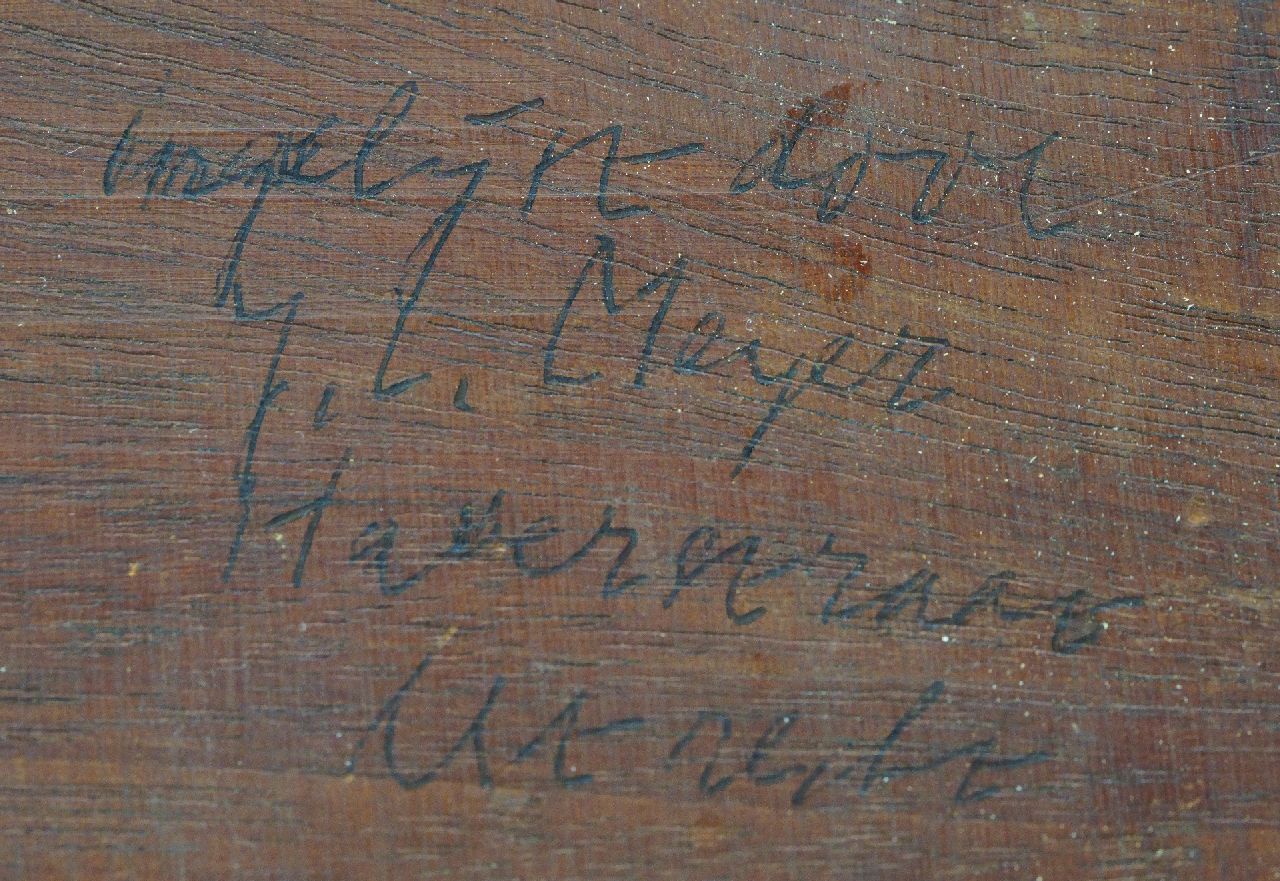 ingelijst door
J. L. Meyer
Haverstraat
Utrecht